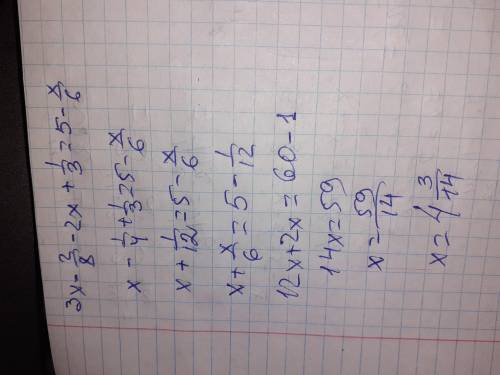 3x - 2/8 - 2x + 1/3 = 5 - x/6
x - 1/4 + 1/3 = 5 - x/6
x + 1/12 = 5 - x/6
x + x/6 = 5 - 1/12
12x + 2x = 60 - 1
14x = 59
x = 59/14
x = 4 3/14